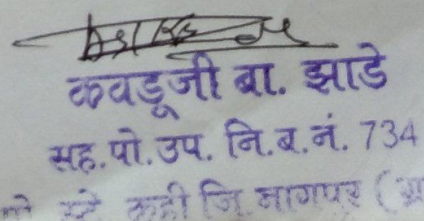 कवडूजी बा. झाडे
सह. पो. उप. नि. ब. नं. 734
जि. नागपूर (ग्रा